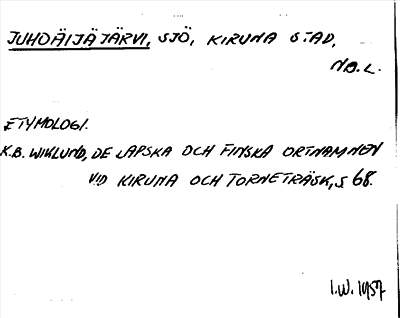 JUHOÄIJÄJÄRVI, SJÖ, KIRUNA STAD,
NB. L.
ETYMOLOGI.
K.B. WIKLUND, DE LAPSKA OCH FINSKA ORTNAMNEN
VID KIRUNA OCH TORNETRÄSK, S 68.
I.W. 1957